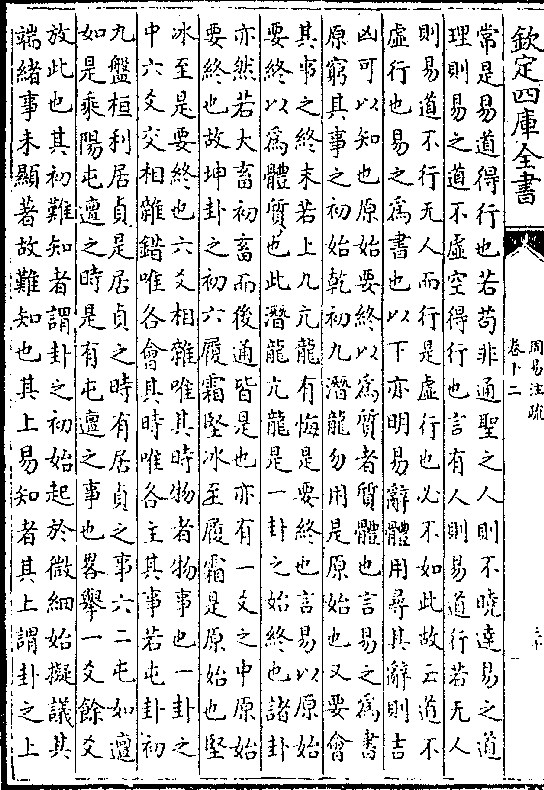 欽定四庫全書
周易注疏
卷十二
常是易道得行也若苟非通聖之人則不曉達易之道
理則易之道不虛空得行也言有人則易道行若无人
則易道不行无人而行是虛行也必不如此故云道不
虛行也易之為書也以下亦明易辭體用尋其辭則吉
凶可以知也原始要終以為質者質體也言易之為書
原窮其事之初始乾初九潛龍勿用是原始也又要會
其事之終末若上九亢龍有悔是要終也言易以原始
要終以為體質也此潛龍亢龍是一卦之始終也諸卦
亦然若大畜初畜而後通皆是也亦有一爻之中原始
要終也故坤卦之初六履霜堅冰至履霜是原始也堅
冰至是要終也六爻相雜唯其時物者物事也一卦之
中六爻交相雜錯唯各會其時唯各主其事若屯卦初
九盤桓利居貞是居貞之時有居貞之事六二屯如邅
如是乘陽屯邅之時是有屯邅之事也畧舉一爻餘爻
放此也其初難知者謂卦之初始起於微細始擬議其
端緒事未顯著故難知也其上易知者其上謂卦之上